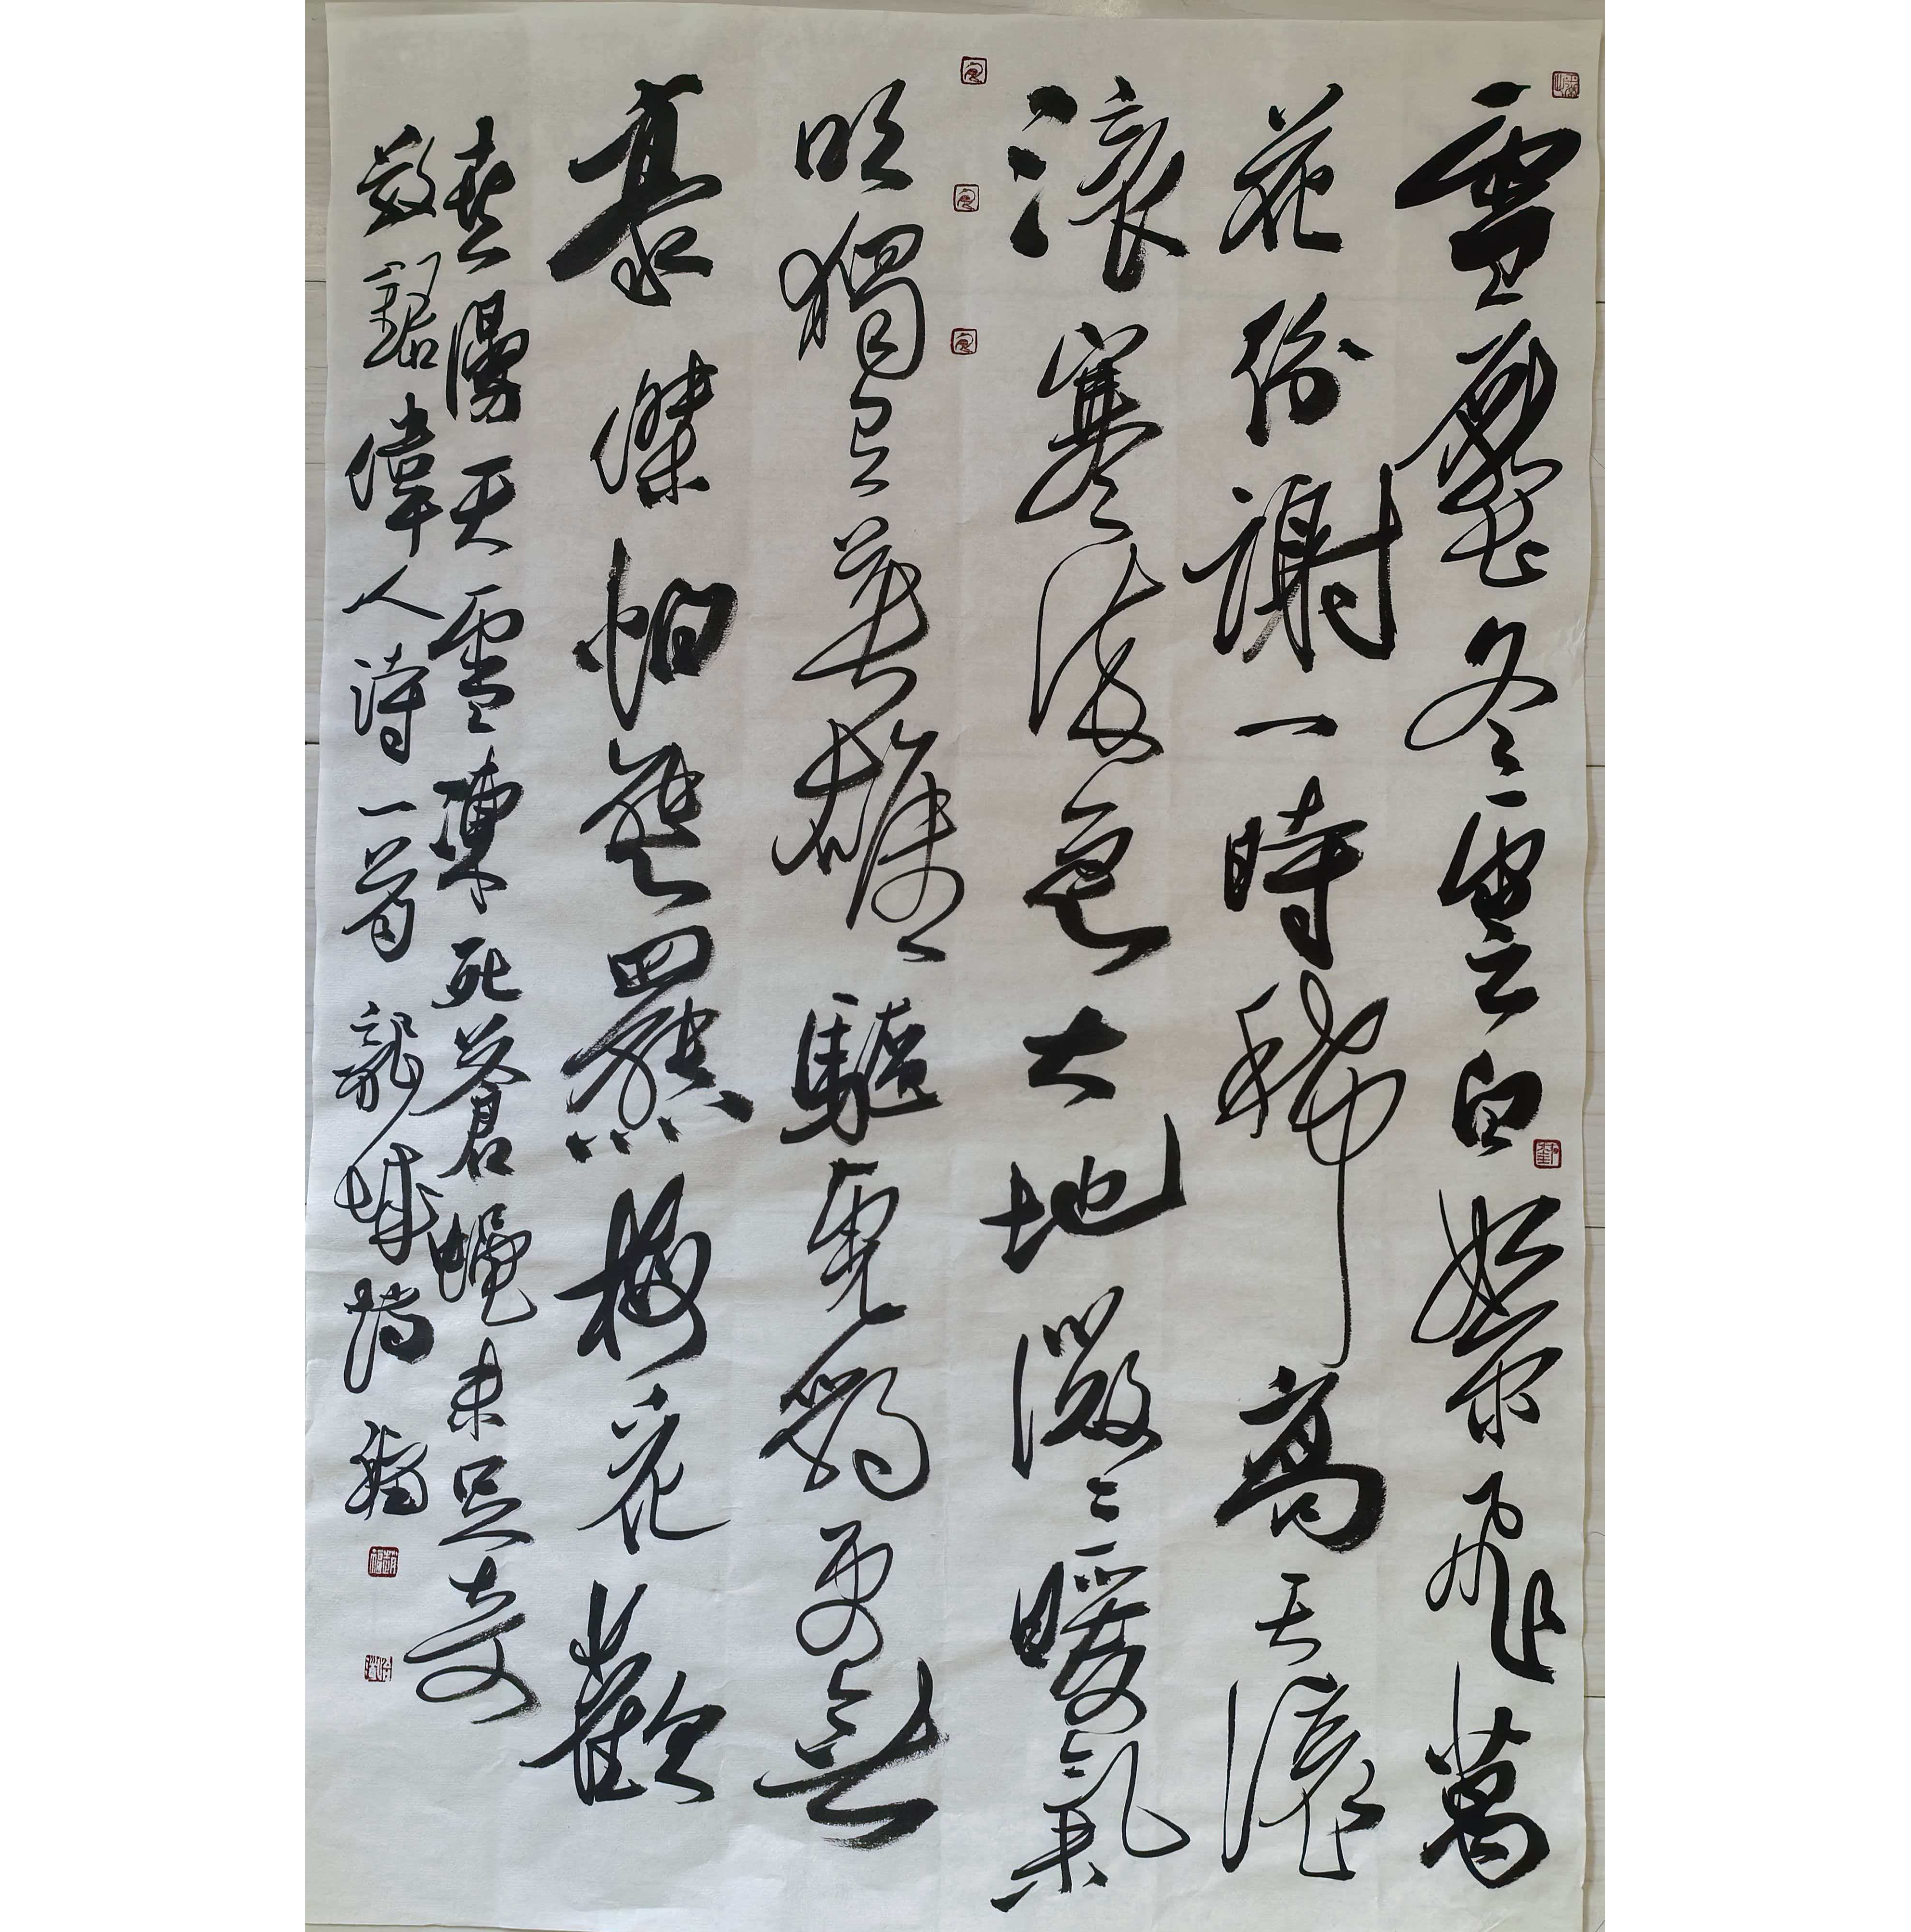 雪壓冬雲白絮飛萬
花紛謝一時稀高天滾
滾寒流急大地微〻暖氣
吹獨有英雄驅虎豹更無
豪傑怕熊羆梅花歡
喜漫天雪凍死蒼蠅未足奇
敬錄偉人詩一首龍城